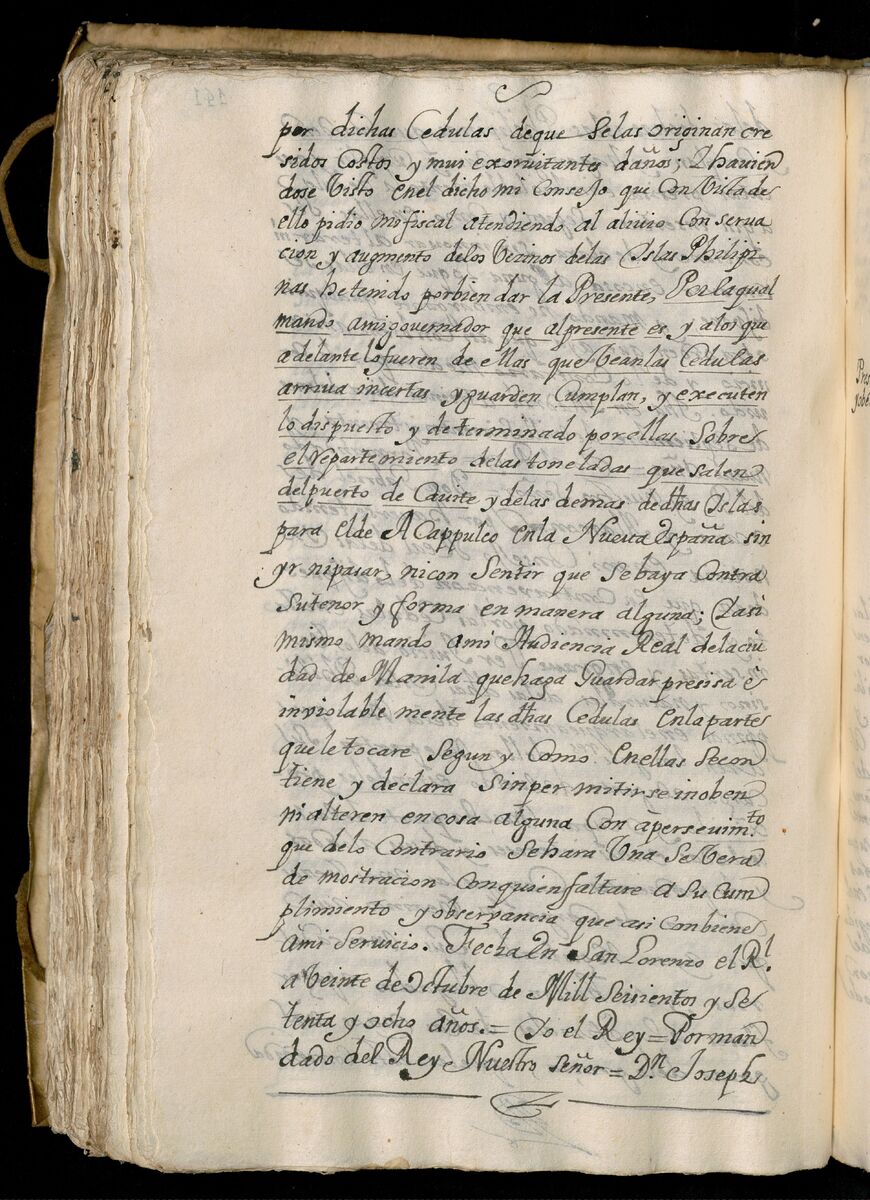 por dichas Cedulas deque Selas originan cre
sidos Costos y mui exorvitantes daños; Y havien
dose Visto enel dicho mi Consejo que Con Vista de
ello pidio mi fiscal atendiendo al alivio Conserva
cion y augmento delos Vezinos delas Yslas Philipi-
nas he tenido por bien dar la Presente, Por la qual
mando ami governador que al presente es, y alos que
adelante lo fueren de ellas que Vean las Cedulas
arriva incertas y guarden Cumplan, y executen
lo dispuesto y determinado por ellas Sobre
el repartemiento delas toneladas que salen
del puerto de Cavite y delas demas de dhas Yslas
para el de ACappulco en la Nueva España sin
yr ni pasar, ni con Sentir que Se baya Contra
Su tenor y forma en manera alguna; Y asi
mismo mando ami Audiencia Real dela ciu
dad de Manila que haga Guardar presisa è
inviolable mente las dhas Cedulas en la parte
que le tocare Segun y Como En ellas Se con
tiene y declara Sin per mitir se inoben
ni alteren en cosa alguna Con apersevim.to
que delo Contrario Se hara Una Sebera
de mostracion Con quien faltare a Su Cum
plimiento y observancia que asi Conbiene
ami Servicio. Fecha En San Lorenzo el R.l
a Veinte de Octubre de Mill Seisientos y Se
tenta y ocho años. = Yo el Rey = Por man
dado del Rey Nuestro Señor = D.n Joseph